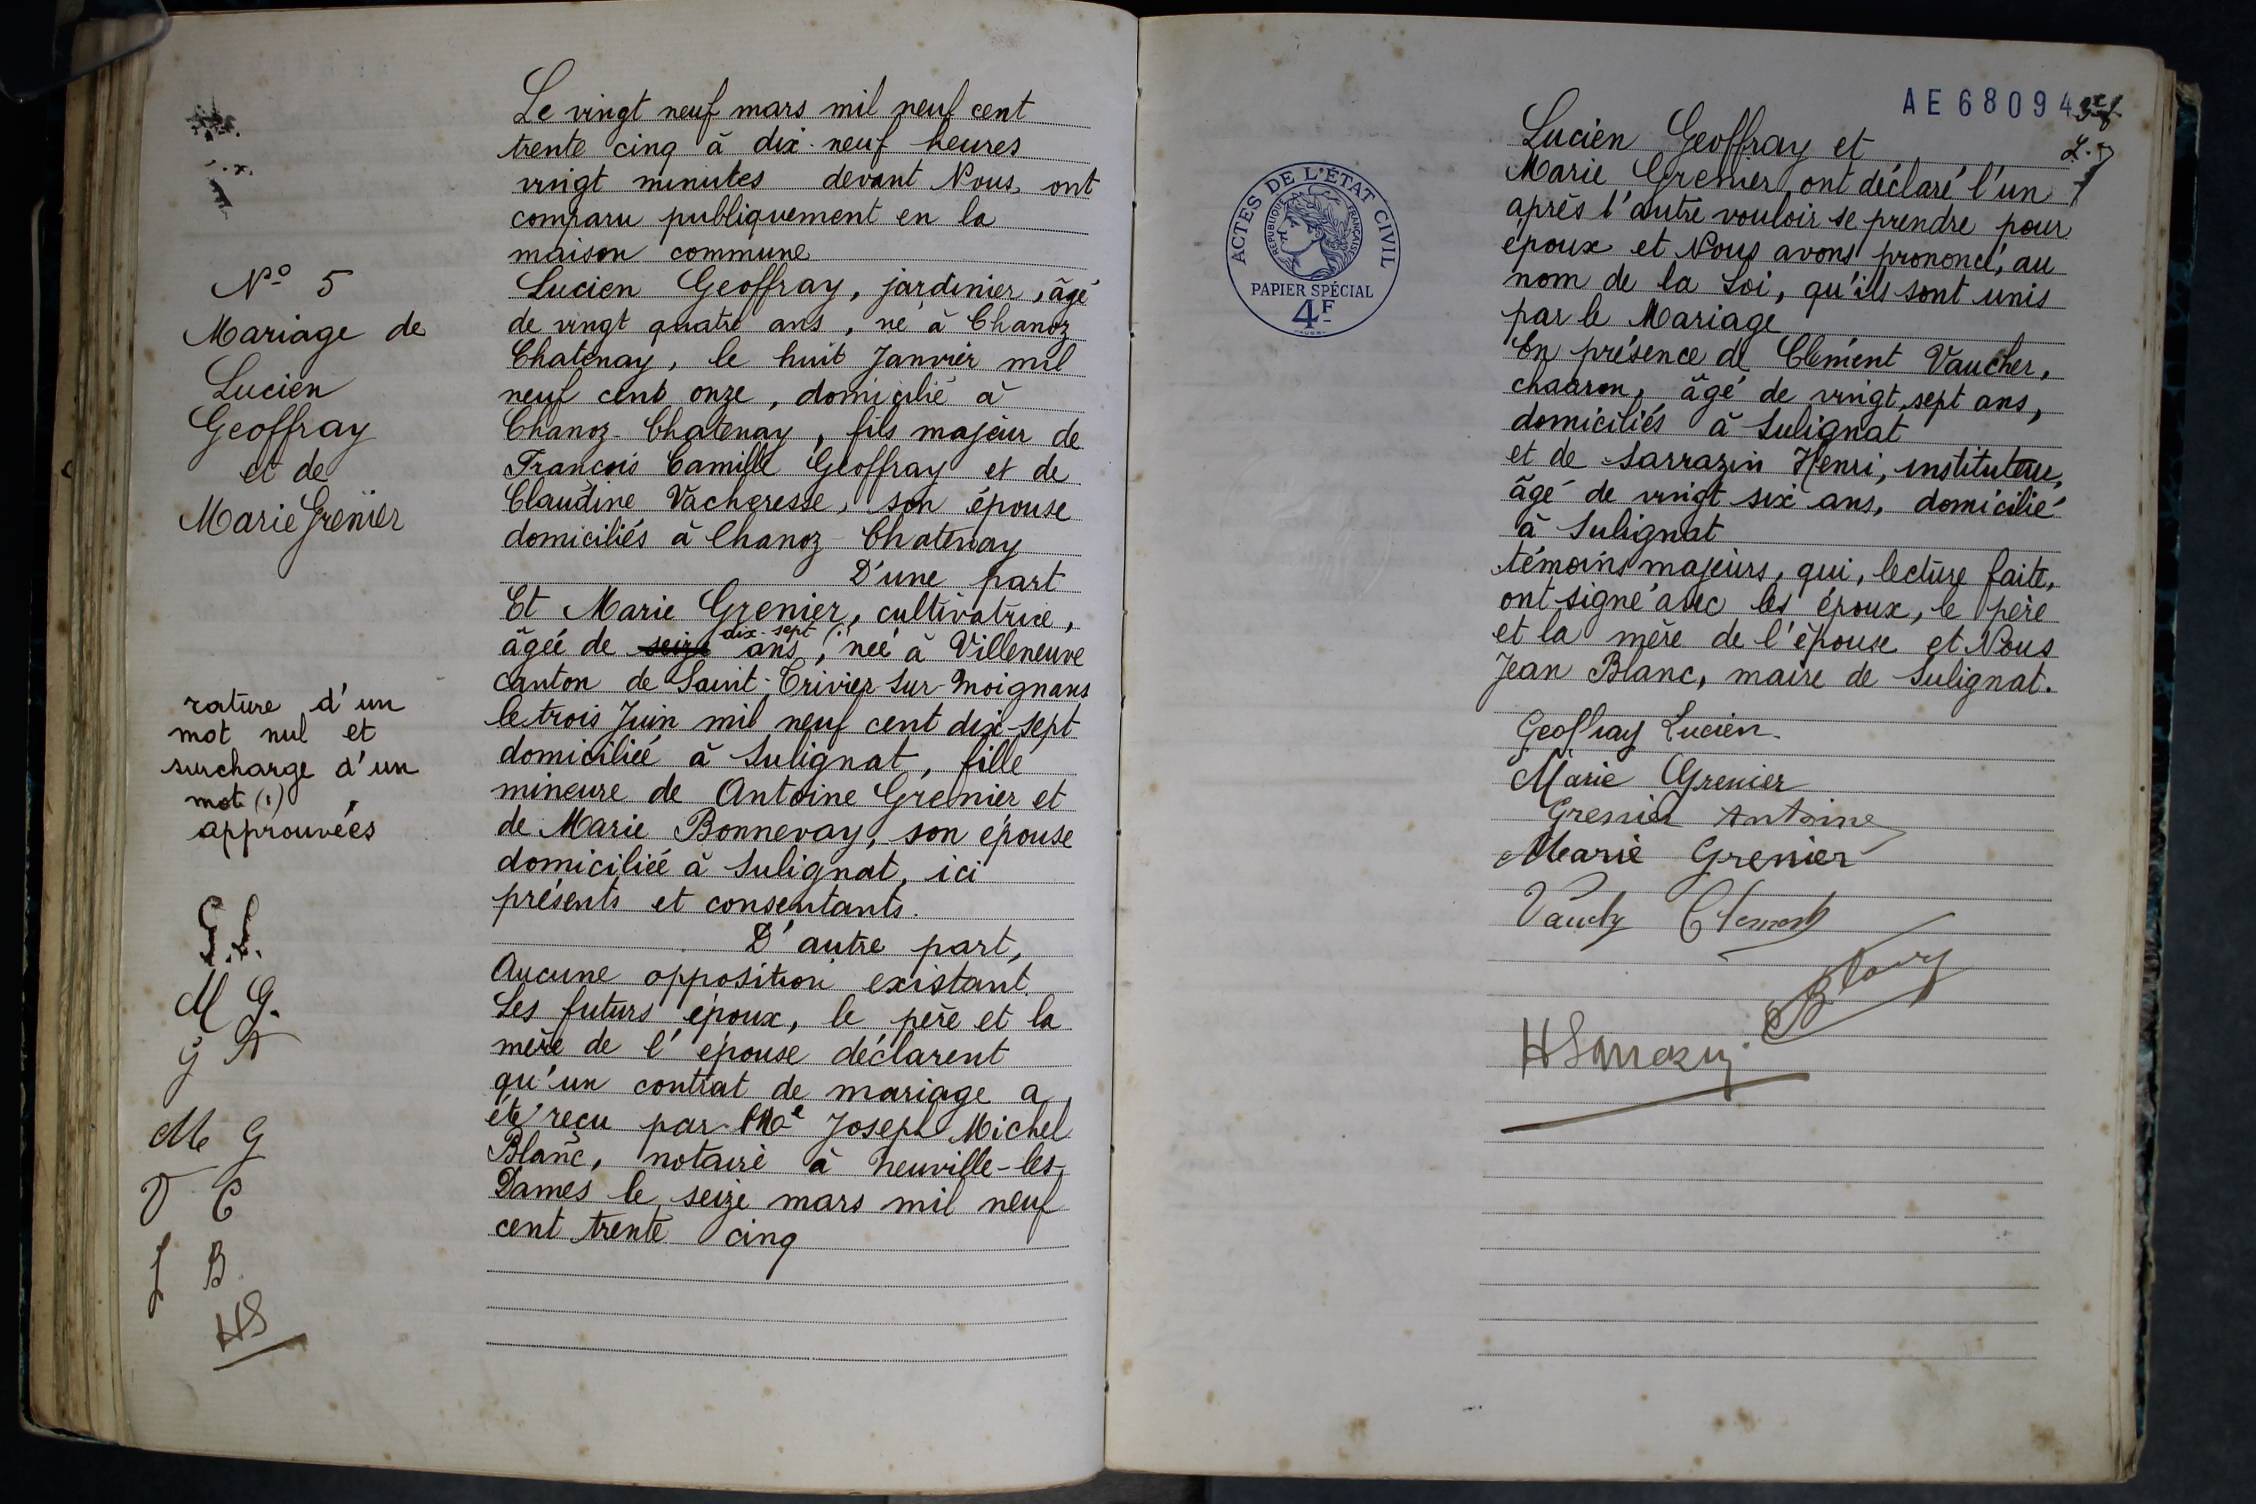 Nº 5
Mariage de
Lucien
Geoffray
et de
Marie Grenier
rature d'un
mot nul et
surcharge d'un
mot (1)
approuvées
G. L.
M G.
G A
M G
V C
J B
HS
Le vingt neuf mars mil neuf cent
trente cinq à dix-neuf heures
vingt minutes devant Nous ont
comparu publiquement en la
maison commune
Lucien Geoffray, jardinier, âgé
de vingt quatre ans, né à Chanoz
Chatenay, le huit Janvier mil
neuf cent onze, domicilié à
Chanoz-Chatenay, fils majeur de
Francois Camille Geoffray et de
Claudine Vacheresse, son épouse
domiciliés à Chanoz-Chatenay
D'une part
Et Marie Grenier, cultivatrice,
âgée de seize dix-sept ans (1), née à Villeneuve
canton de Saint-Trivier-sur-Moignans
le trois Juin mil neuf cent dix-sept
domiciliée à Sulignat, fille
mineure de Antoine Grenier et
de Marie Bonnevay, son épouse
domiciliée à Sulignat, ici
présents et consentants.
D'autre part,
Aucune opposition existant.
Les futurs époux, le père et la
mère de l'épouse déclarent
qu'un contrat de mariage a
été reçu par Me Joseph Michel
Blanc, notaire à Neuville-les-
Dames le seize mars mil neuf
cent trente cinq
AE 68094
ACTES DE L'ÉTAT CIVIL
RÉPUBLIQUE FRANÇAISE
PAPIER SPÉCIAL
4F
Lucien Geoffray et
Marie Grenier ont déclaré l'un
après l'autre vouloir se prendre pour
époux et Nous avons prononcé, au
nom de la Loi, qu'ils sont unis
par le Mariage
En présence de Clément Vaucher,
charron, âgé de vingt sept ans,
domiciliés à Sulignat
et de Sarrazin Henri, instituteur,
âgé de vingt six ans, domicilié
à Sulignat
témoins majeurs, qui, lecture faite,
ont signé avec les époux, le père
et la mère de l'épouse et Nous
Jean Blanc, maire de Sulignat.
Geoffray Lucien.
Marie Grenier
Grenier Antoine
Marie Grenier
Vaucher Clément
Blanc
HSarrazin